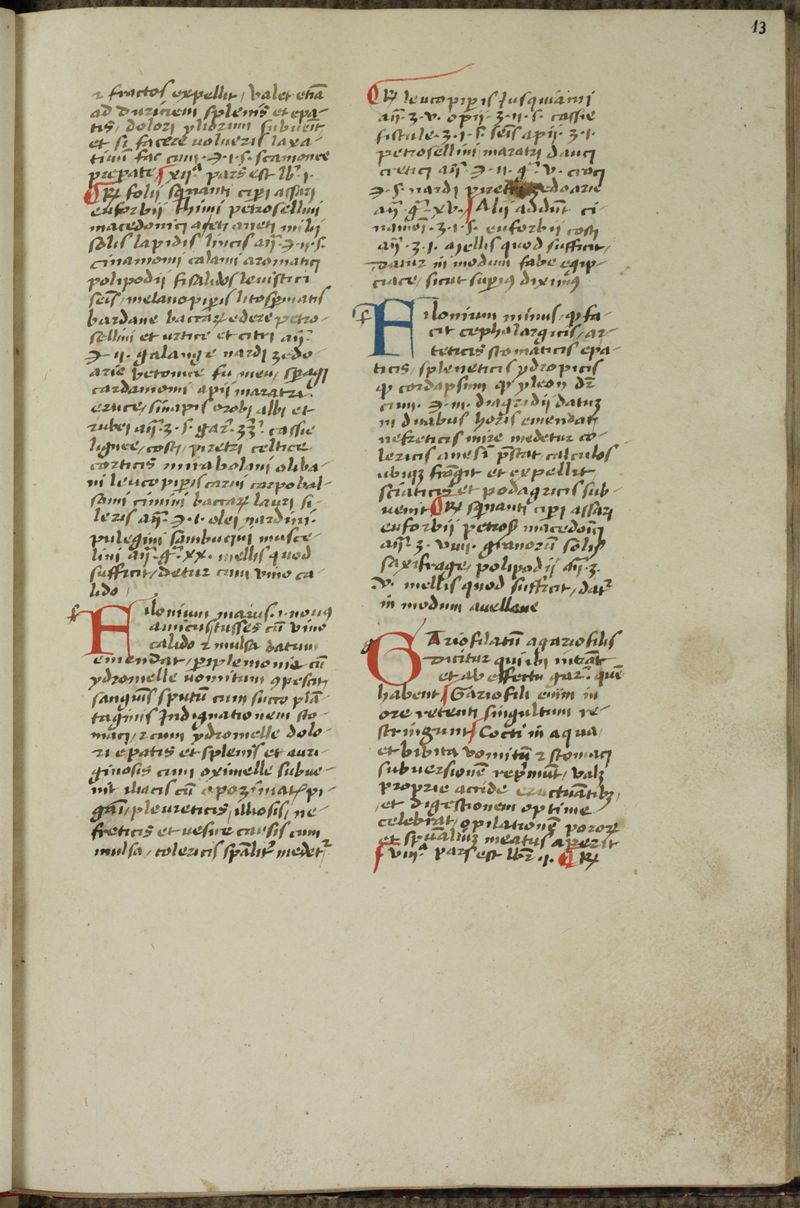 13
⁊ fractos expellit / valet etiā
ad duriciem splenis et epa-
tis / dolori yliorum subuenit
et si facere volueris laxa-
tiuū fac cum ℈ i s scamonee
preparate xii pars est lb i
℞ folii squinanti cipi assari
euforbii thimi petrosellini
macedonici aneti milii
solis lapidis lincis añ ℈ ii s
cinamomi calami aromatici
polipodii fisalidos leuistici
sem̄ melanopiperis litospermatis
bardane baccarū edere petro-
sellini et urtice et citri añ
℈ ii galange nardi zedo-
arie betonice fu meu spagi
cardamomi apii maratri
eruce / sinapis orobi albi et
rubei añ ʒ s gar cassie
lignee / costi / piretri celtice
corticis mirabolani oliba-
ni leucopiperis carui carpobal-
sami cimini baccarū lauri si-
leris añ ℈ i olei nardini
pulegini sambucini musce-
lini añ xx mellis quod
sufficit / detur cum vino ca-
lido
f
Filonium maius i nouū
amicis tusses cū vino
calido ⁊ mulsa datum
emendat / piplemonia cū
ydromelle vomitum ꝯpescit
sanguīs sputū cum succo plā-
taginis Indignationem sto-
maci / ⁊ cum ydromelle dolo-
ri epatis et splenis et auri-
ginosis cum oximelle subue-
nit iliacis cū apozimate pi-
gani / pleureticis / illiosis / ne-
freticis et vesice causis cum
mulsa / colericis spālit medet
℞ leucopiperis Iusquiami
añ ʒ v opii ʒ ii s cassie
fistule ʒ i s sem̄ apii ʒ i
petrosellini maratri dauci
cretici añ ℈ ii v croci
℈ s nardi piretri zedoarie
añ xv Alii addunt ci-
namoi ʒ i s euforbii costi
añ ʒ i mellis quod sufficit /
Datur in modum fabe egip-
ciace / sicut superius diximus
f
Filonium minus / ꝙ fa-
cit cephalargicis / ar-
teticis stomaticis epa-
ticis / spleneticis ydropicis
ꝙ cordapsum ꝙ yleon dr
cum ℈ iii diagridii datum
in duabus horis emendat
nefreticis mire medetur co-
lericis anesim prestat calculos
ubiqꝫ frangit et expellit
sciaticis et podagricis sub-
uenit ℞ squinanti cipi assari
euforbii petros macedoni
añ ʒ viii granorū solis
saxifrage / polipodii añ ʒ
v mellis quod sufficit / dat
in modum auellane
g
Gariofilatū a gariofilis
dicitur qui ibi intrāt
et ab effectu gar quē
habent Gariofili enim in
ore retenti singultum re-
stringunt Cocti in aqua
et bibita vomitū ⁊ stomaci
subuersionē reprimūt / valꝫ
proprie acride eructuantibꝫ /
/ et digestionem optime
celebrat / opilationē pororū
et spūaliuꝫ meatus aperit
viii pars est lb i ℞